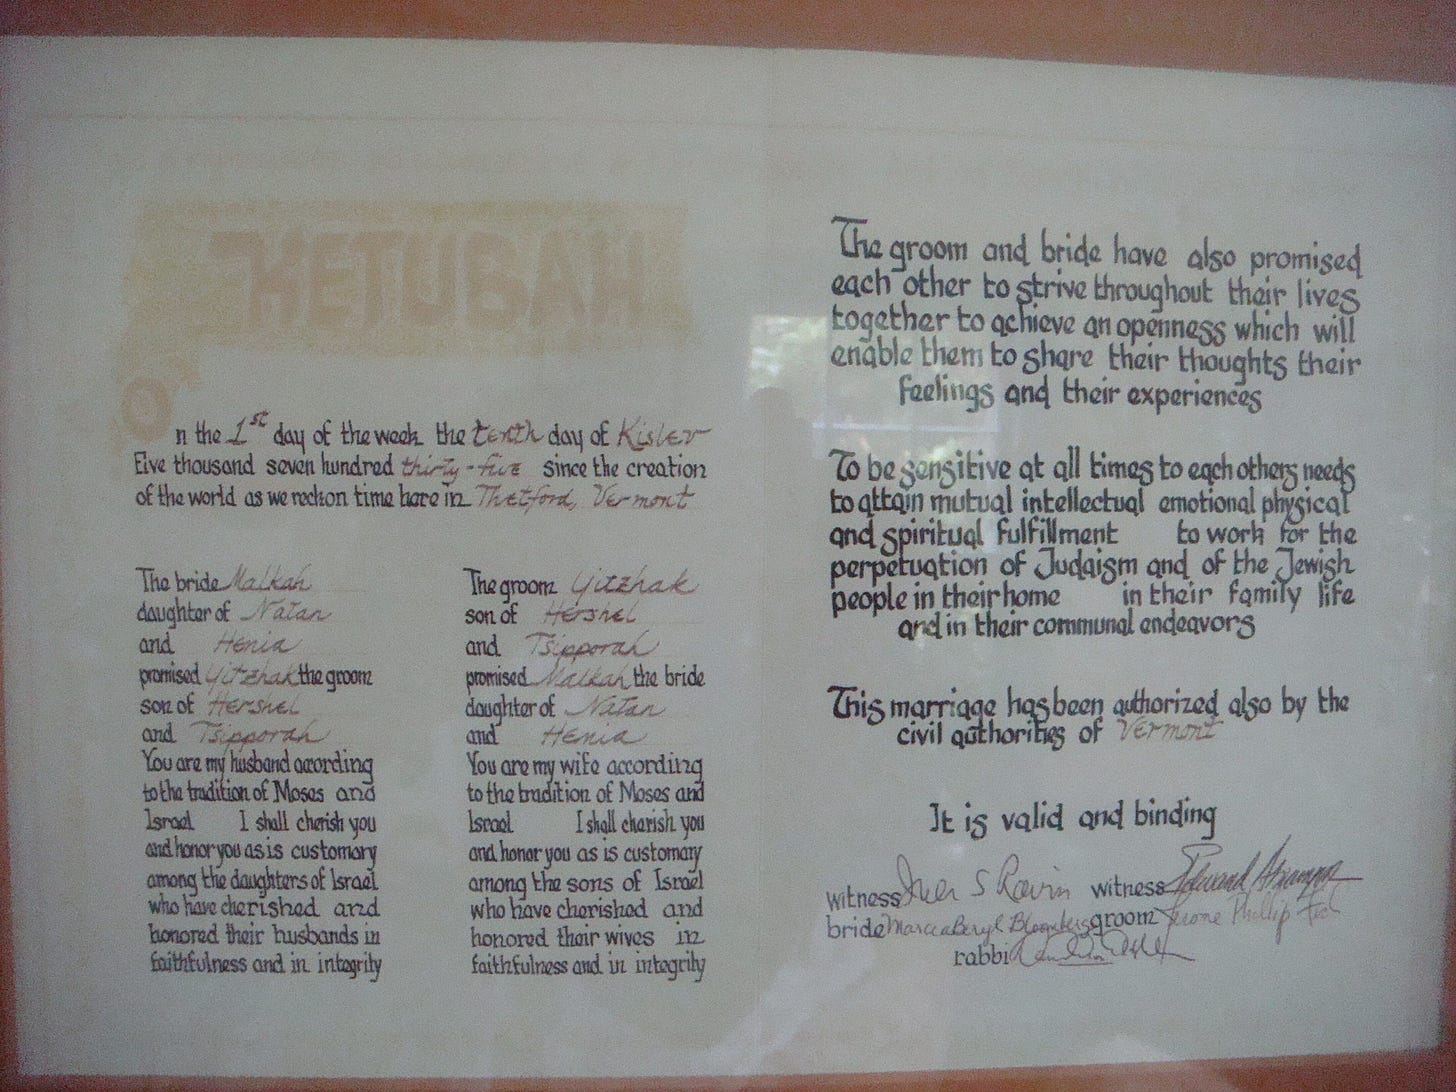 KETUBAH
On the 1st day of the week the tenth day of Kislev
Five thousand seven hundred thirty-five since the creation
of the world as we reckon time here in Thetford, Vermont
The bride Malkah
daughter of Natan
and Henia
promised Yitzhak the groom
son of Hershel
and Tsipporah
You are my husband according
to the tradition of Moses and
Israel I shall cherish you
and honor you as is customary
among the daughters of Israel
who have cherished and
honored their husbands in
faithfulness and in integrity
The groom Yitzhak
son of Hershel
and Tsipporah
promised Malkah the bride
daughter of Natan
and Henia
You are my wife according
to the tradition of Moses and
Israel I shall cherish you
and honor you as is customary
among the sons of Israel
who have cherished and
honored their wives in
faithfulness and in integrity
The groom and bride have also promised
each other to strive throughout their lives
together to achieve an openness which will
enable them to share their thoughts their
feelings and their experiences
To be sensitive at all times to each others needs
to attain mutual intellectual emotional physical
and spiritual fulfillment to work for the
perpetuation of Judaism and of the Jewish
people in their home in their family life
and in their communal endeavors
This marriage has been authorized also by the
civil authorities of Vermont
It is valid and binding
witness S Ravin witness Edward
bride Marcia Beryl Bloomberg groom Jerome Phillip
rabbi